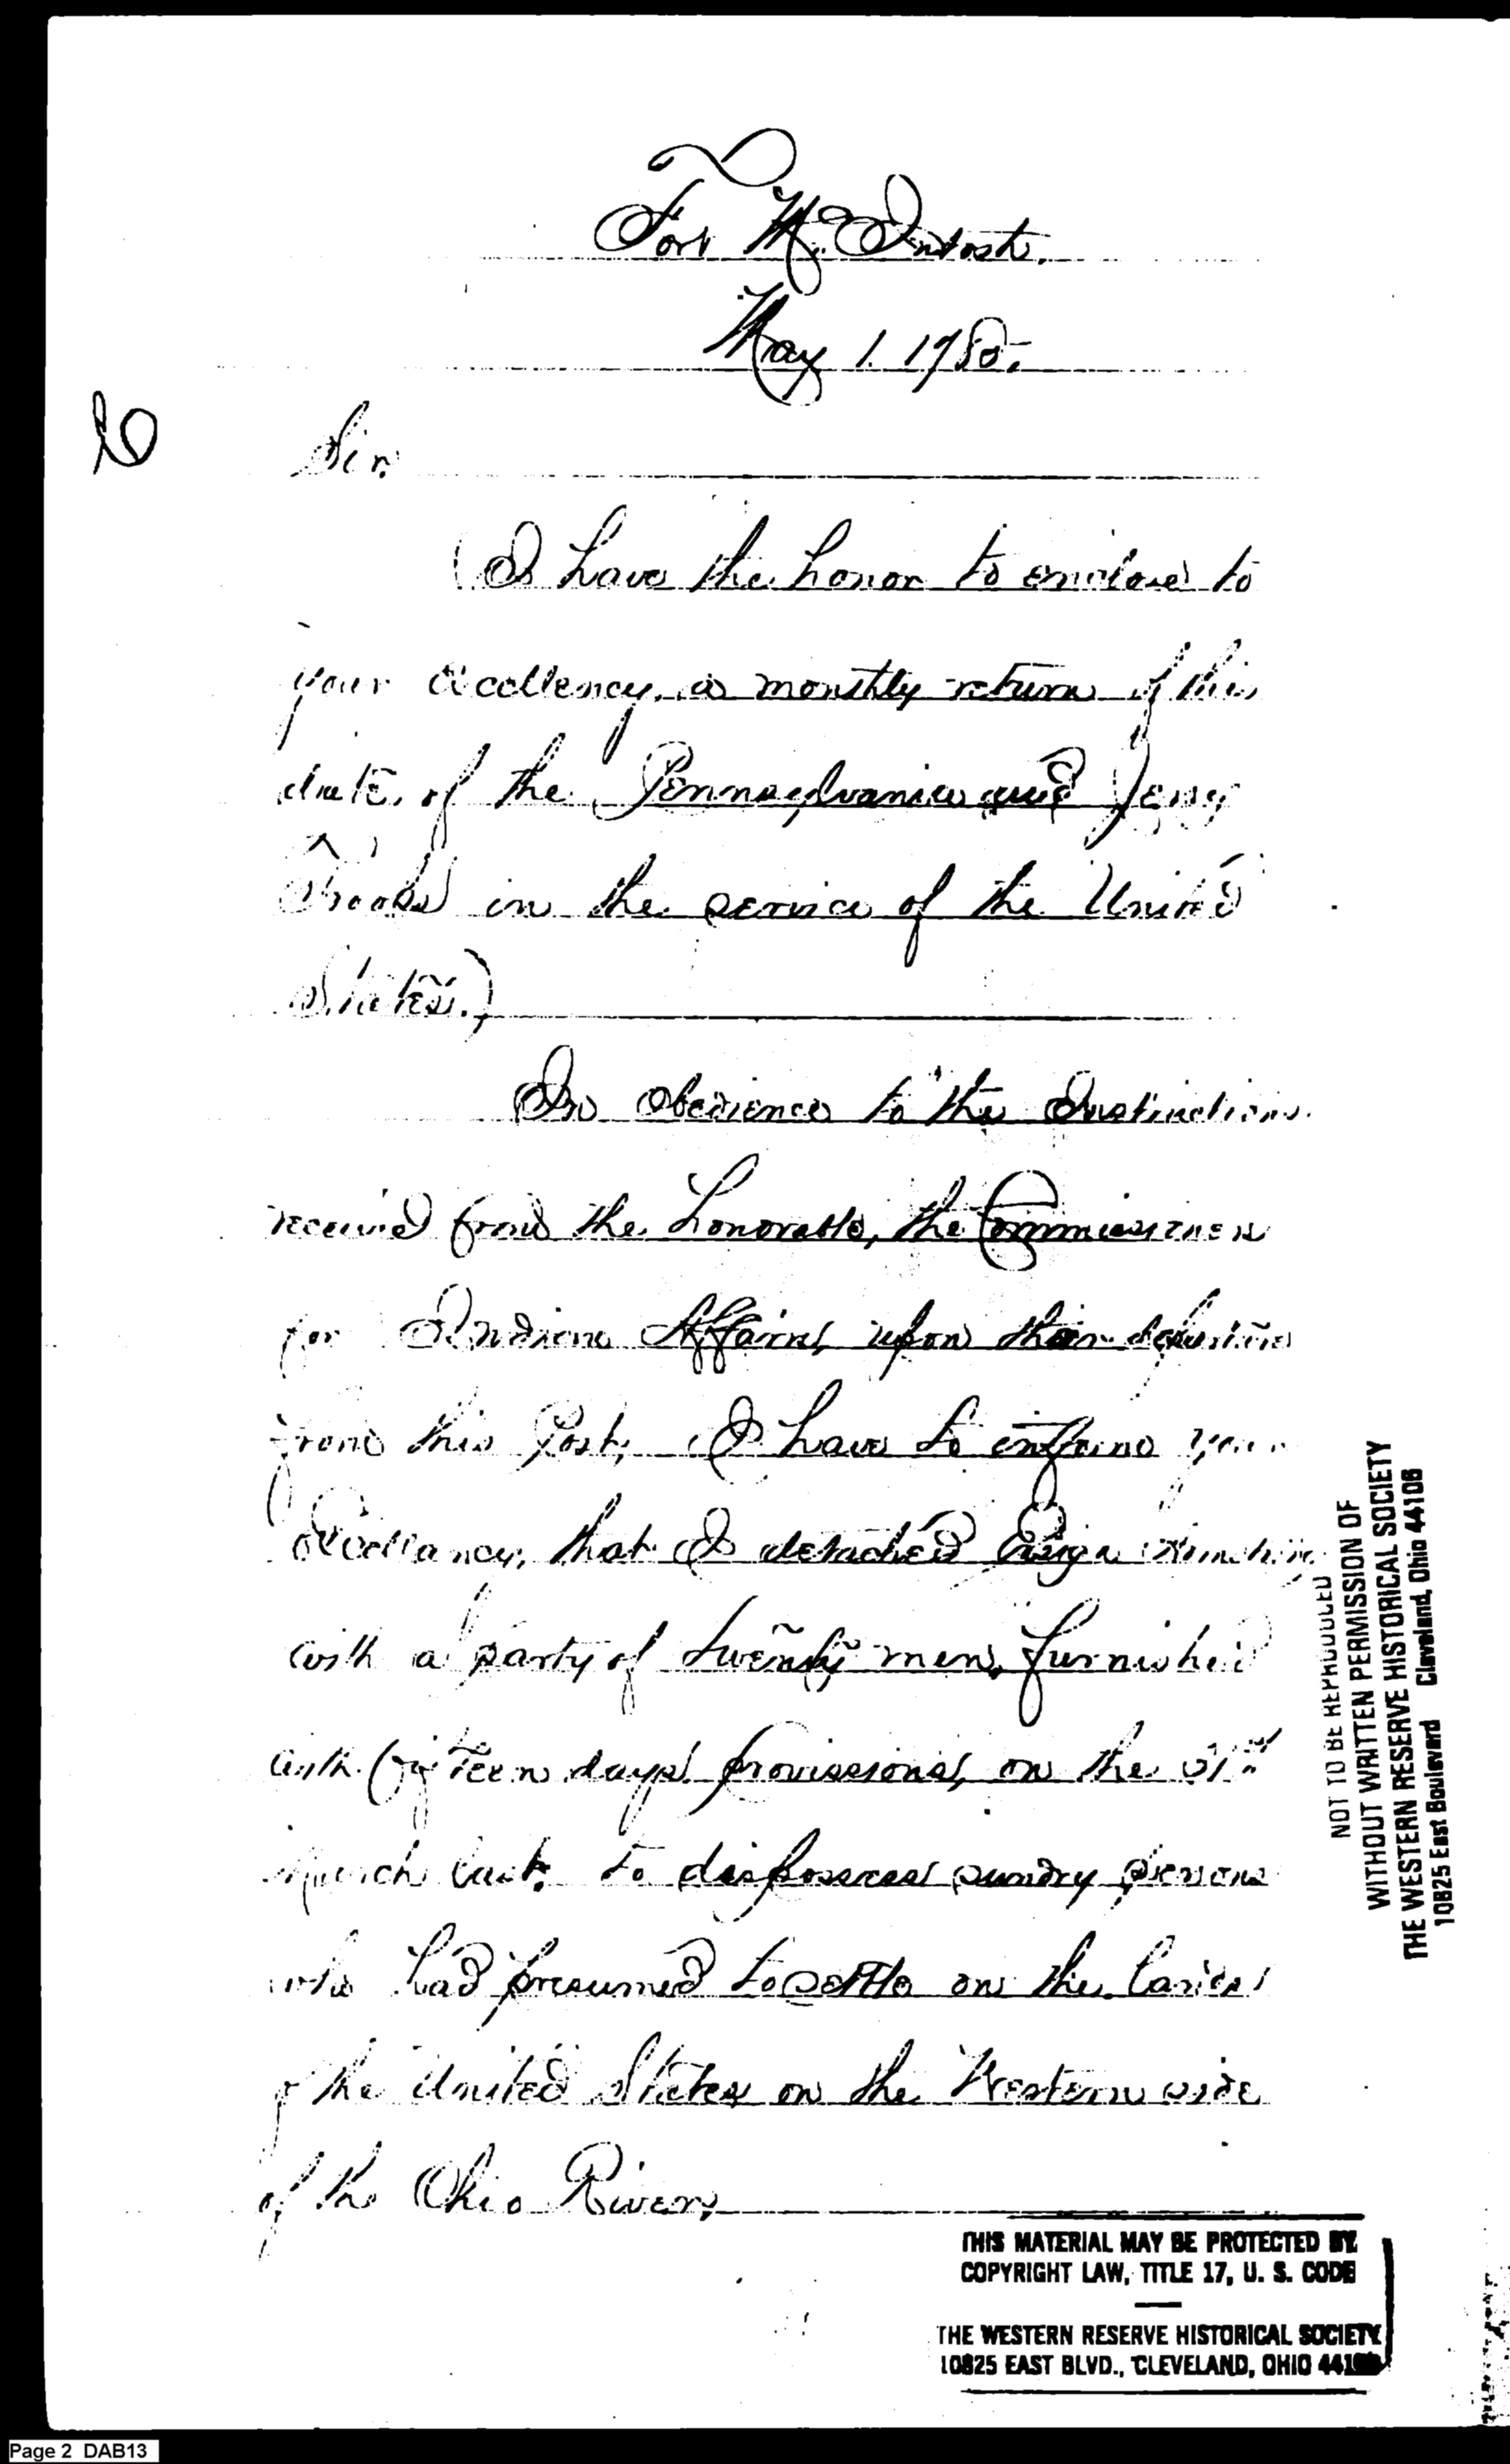 Fort McIntosh.
May 1. 1785.
Sir.
(I have the honor to enclose to
your Excellency, a monthly return of this
date, of the Pennsylvania and Jersey
Troops in the service of the United
States.)
In obedience to the Instructions
received from the honorable, the Commissioners
for Indian Affairs, upon their
from this Post, I have to inform your
Excellency, that I detached Ensign Armstrong
with a party of twenty men, furnished
with fifteen days provisions, on the 31st
March last, to dispossess sundry persons
who had presumed to settle on the lands
of the United States on the Western side
of the Ohio River,
NOT TO BE REPRODUCED
WITHOUT WRITTEN PERMISSION OF
THE WESTERN RESERVE HISTORICAL SOCIETY
10825 East Boulevard Cleveland, Ohio 44106
THIS MATERIAL MAY BE PROTECTED BY
COPYRIGHT LAW, TITLE 17, U. S. CODE
THE WESTERN RESERVE HISTORICAL SOCIETY
10825 EAST BLVD., CLEVELAND, OHIO
Page 2 DAB13